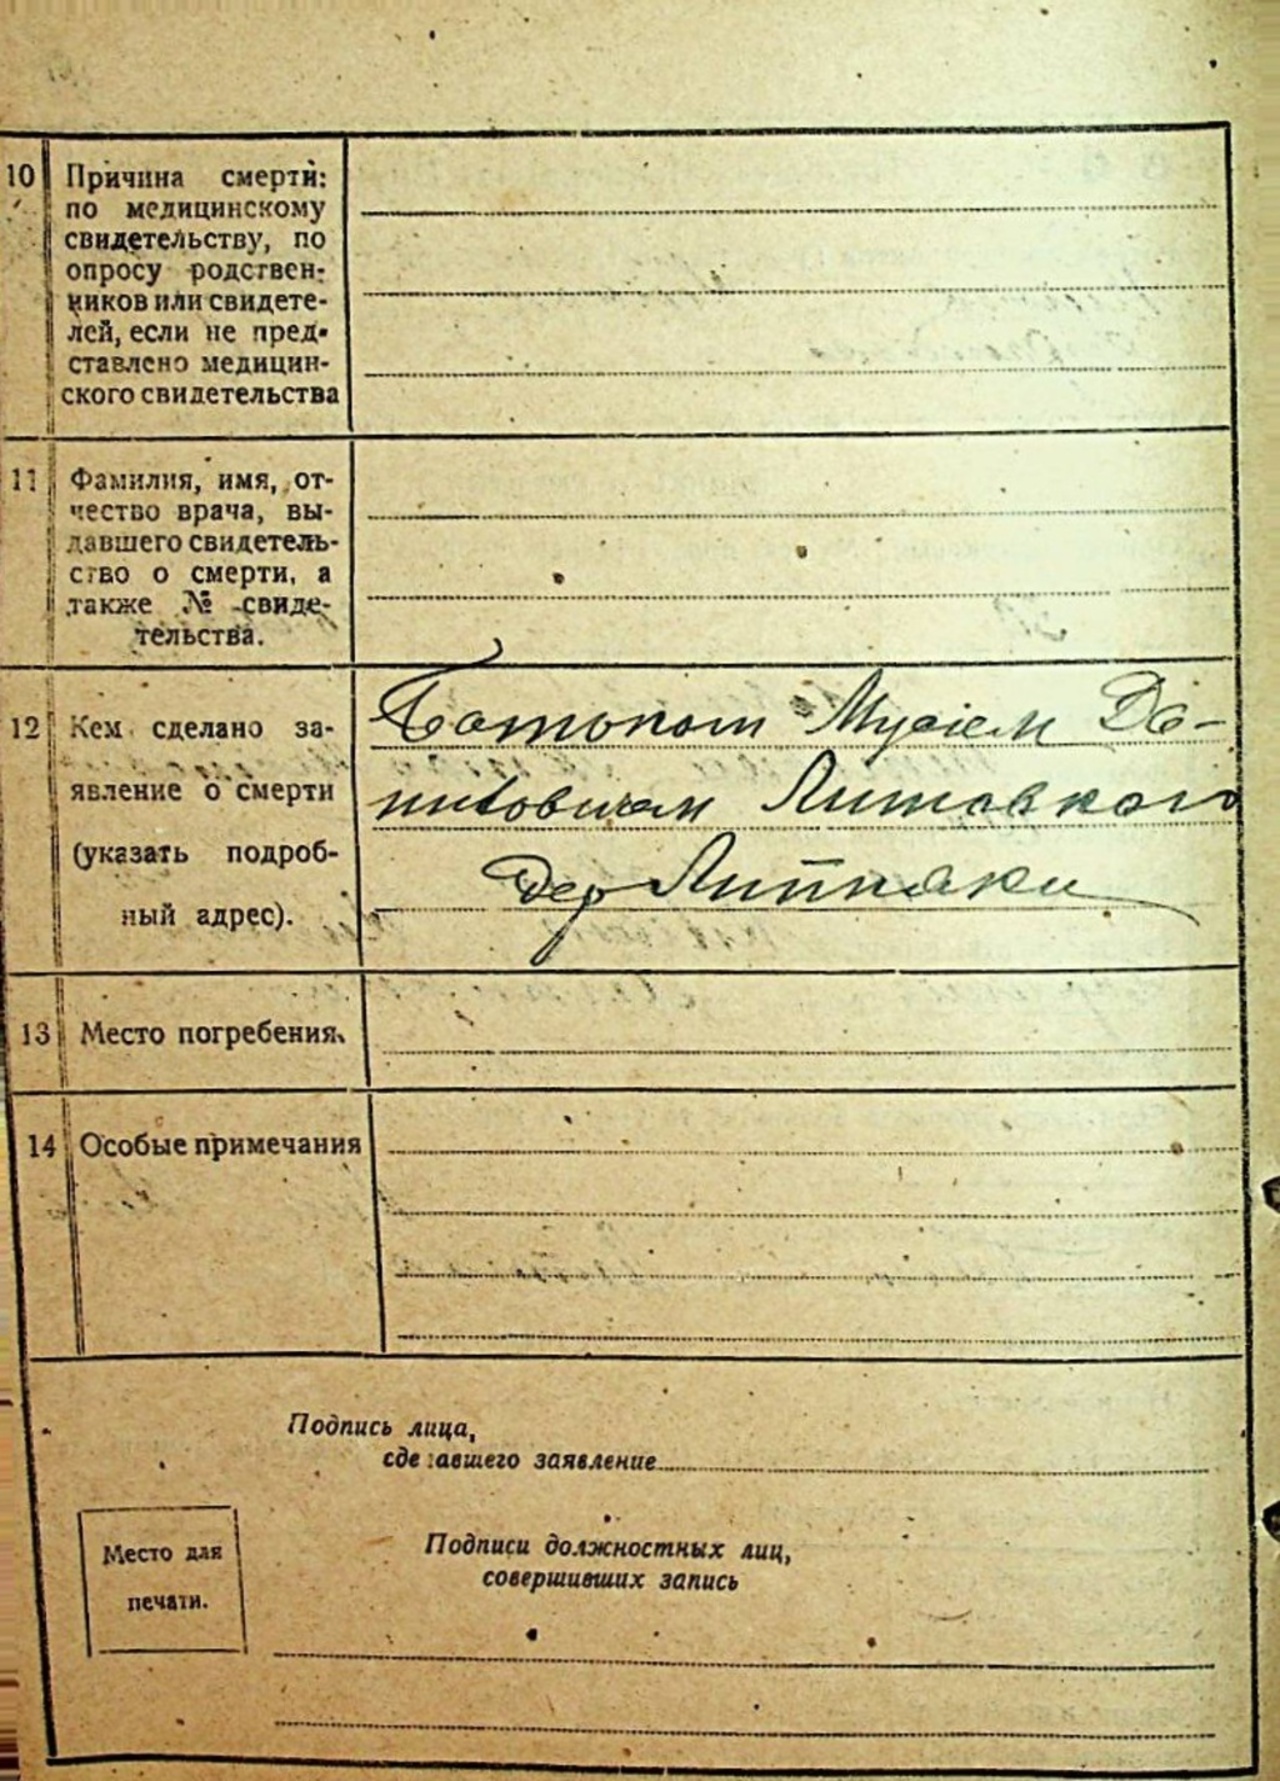 10 Причина смерти:
по медицинскому
свидетельству, по
опросу родствен-
ников или свидете-
лей, если не пред-
ставлено медицин-
ского свидетельства
11 Фамилия, имя, от-
чество врача, вы-
давшего свидетель-
ство о смерти, а
также № свиде-
тельства.
12 Кем сделано за-
явление о смерти
(указать подроб-
ный адрес).
Мусіем Да-
дер
13 Место погребения.
14 Особые примечания
Подпись лица,
сделавшего заявление
Место для
печати.
Подписи должностных лиц,
совершивших запись